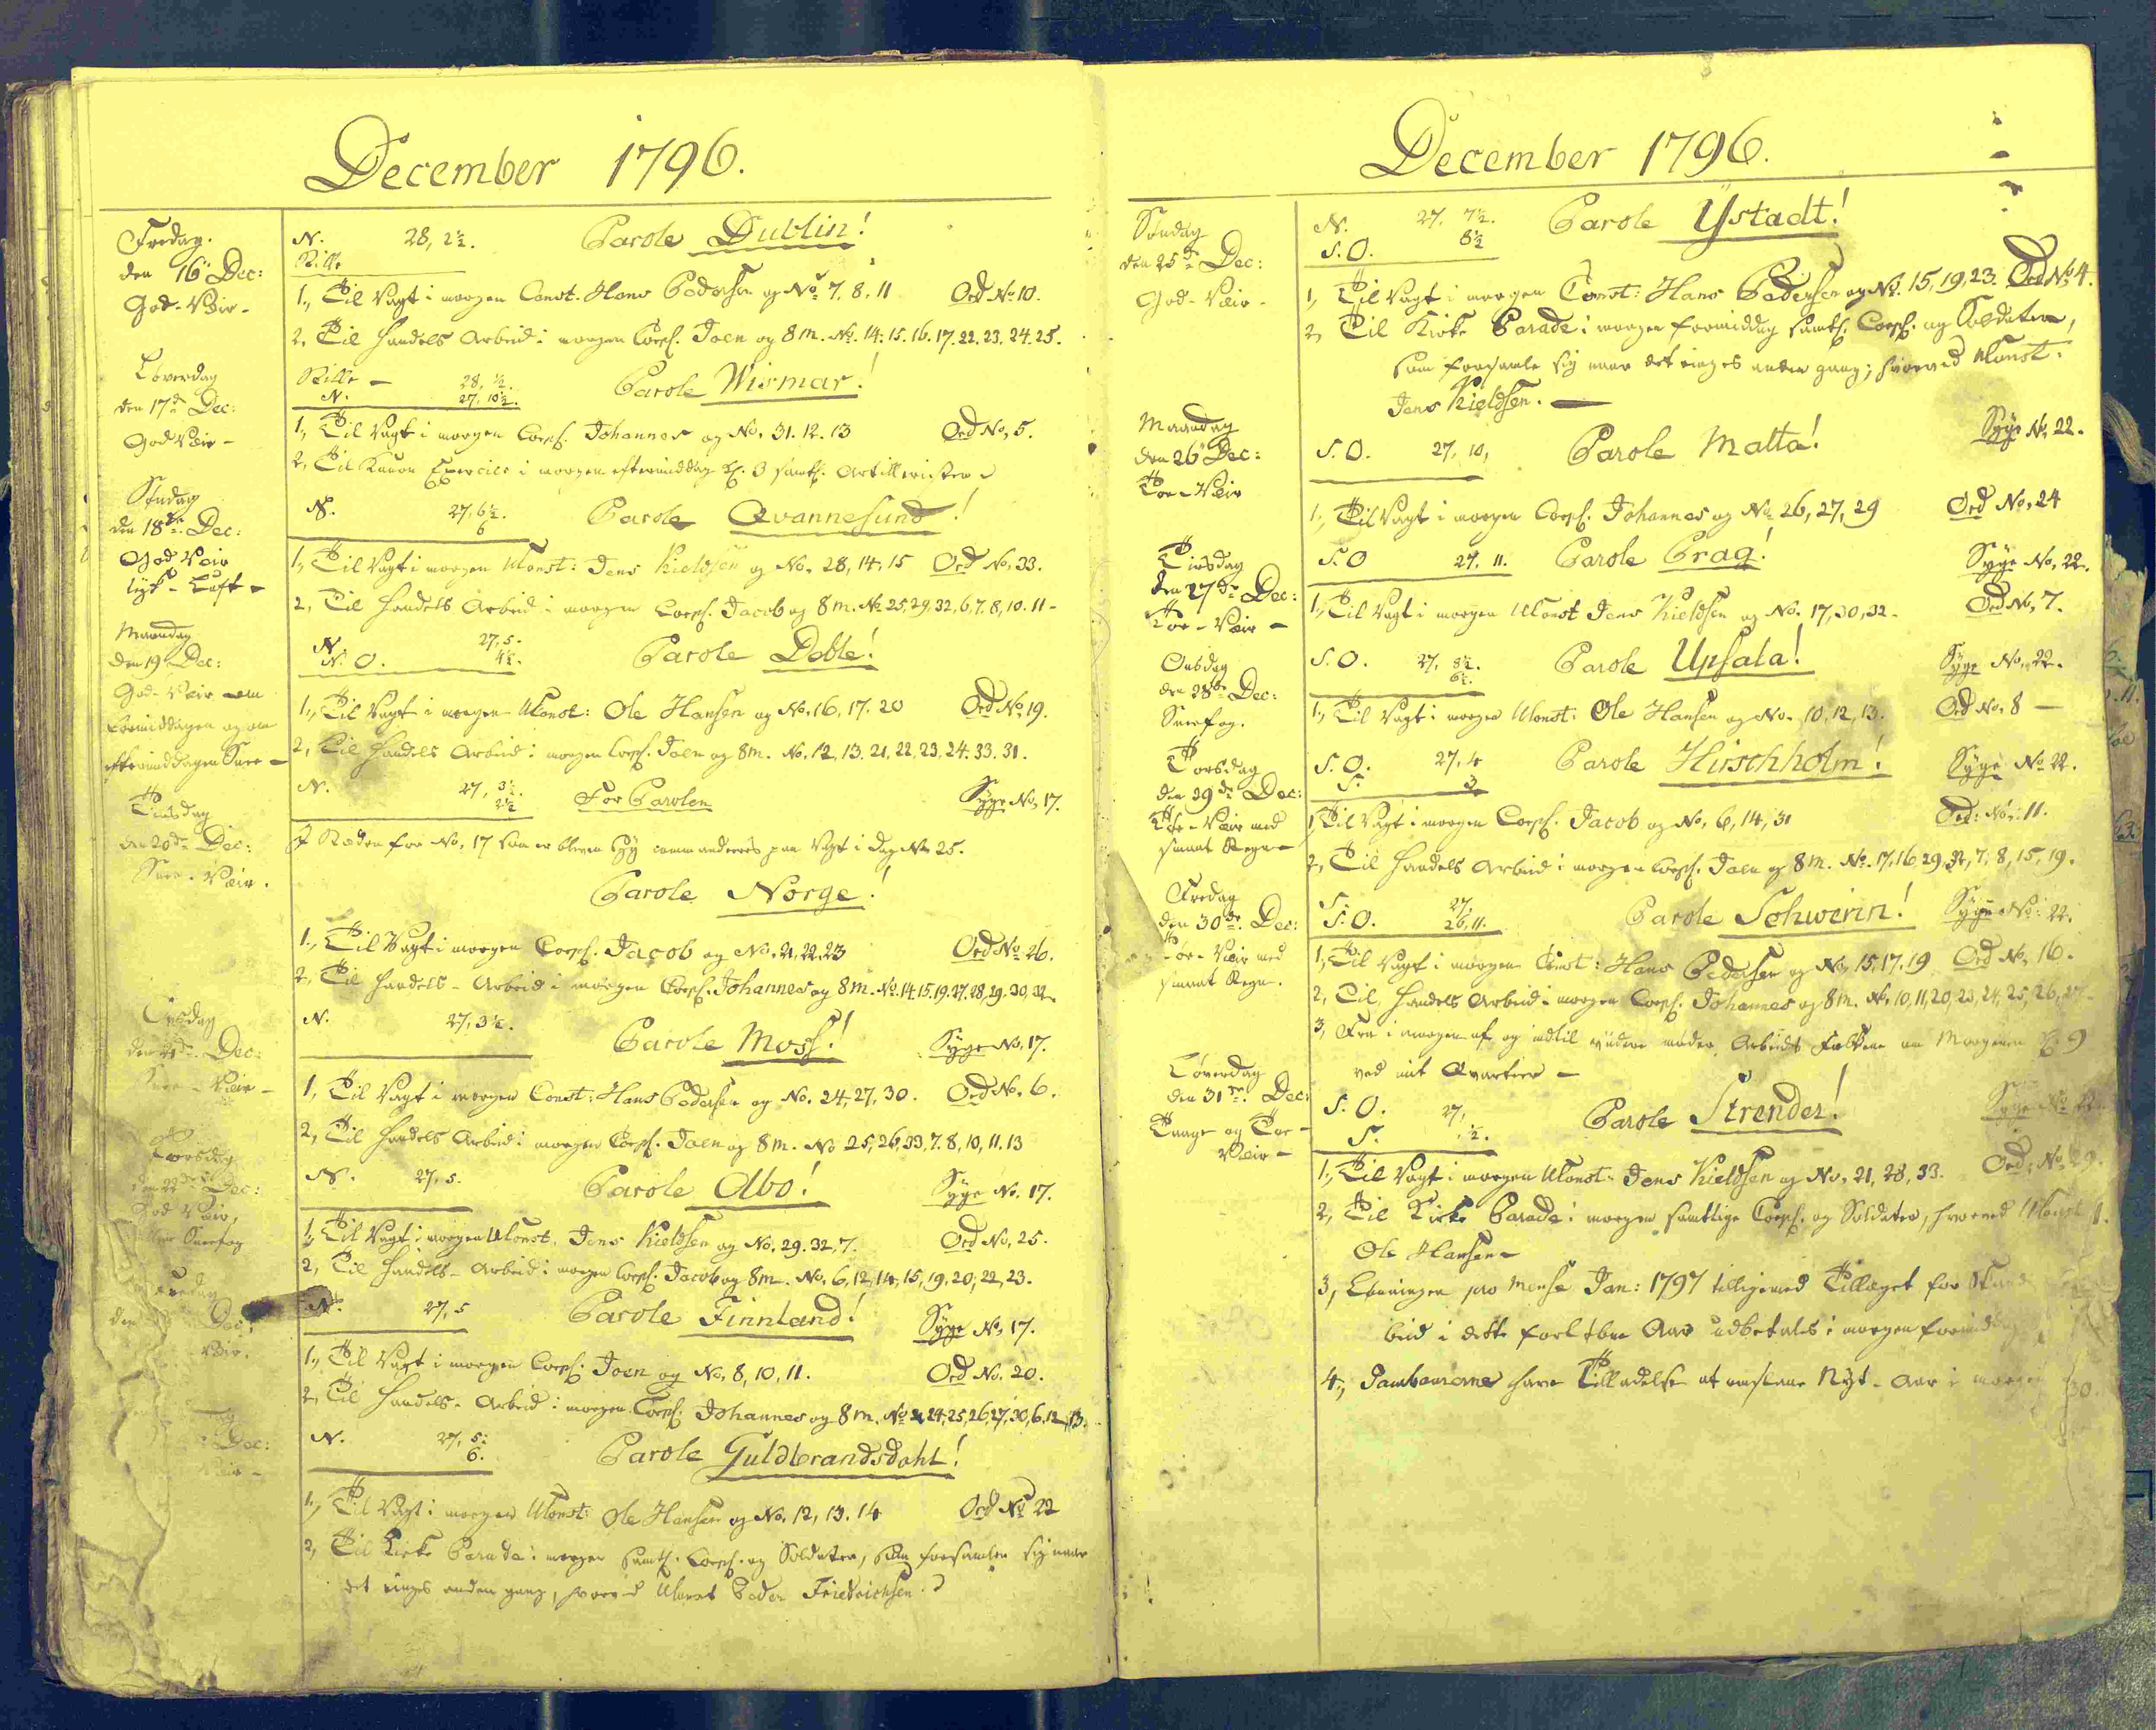 December 1796.
Fredag.
den 16de Dec:
God-Veir-
N. 28, 2½.
Stille
Parole Dublin!
1., Til Vagt i morgen Const. Hans Pedersen og No. 7, 8, 11 Ord No. 10.
2, Til Handels Arbeid i morgen Corpl. Joen og 8 m. No. 14. 15. 16. 17. 22. 23. 24. 25.
Løverdag
den 17de Dec:
God Veir-
Stille - 28, ½.
N. 27, 10½.
Parole Wismar!
1., Til Vagt i morgen Corpl. Johannes og No. 31. 12. 13 Ord No, 5.
2, Til Kanon Exercice i morgen eftermiddag Kl. 3 samtl. Artillerister
Søndag
den 18de Dec:
God Veir
tyk-Luft-
N. 27, 6½.
6
Parole Qvannesund!
1., Til Vagt i morgen UConst: Jens Kieldsen og No. 28, 14, 15 Ord No, 33.
2, Til Handels Arbeid i morgen Corpl. Jacob og 8 m. No 25, 29, 32, 6, 7, 8, 10. 11-
Mandag
den 19 Dec:
God-Veir om
Formiddagen og om
eftermiddagen Snee-
N. 27, 5.
N. O. 4½.
Parole Doble!
1., Til Vagt i morgen UConst: Ole Hansen og No. 16, 17. 20 Ord No. 19.
2, Til Handels Arbeid i morgen Corpl. Joen og 8 m. No. 12, 13. 21, 22, 23, 24. 33. 31.
Tiisdag
den 20de Dec:
Snee-Veir.
N. 27, 3½.
2½
Før Parolen Syge No, 17.
I Steden for No, 17 som er bleven Syg commanderes paa Vagt i Dag No 25.
Parole Norge!
1., Til Vagt i morgen Corpl. Jacob og No. 21, 22, 23 Ord No. 26.
2, Til Handels-Arbeid i morgen Corpl. Johannes og 8 m. No. 14. 15. 19. 27. 28, 29. 30, 32.
Onsdag
den 21de Dec:
Snee-Veir-
N. 27, 3½.
Parole Moss! Syge No, 17.
1, Til Vagt i morgen Const: Hans Pedersen og No. 24, 27, 30. Ord No. 6.
2, Til Handels Arbeid i morgen Corpl. Joen og 8 m. No 25, 26, 33, 7. 8, 10, 11. 13
Torsdag
den 22de Dec:
God Veir,
Sneefog
N. 27, 5.
Parole Abo! Syge No. 17.
1, Til Vagt i morgen UConst. Jens Kieldsen og No. 29. 32, 7. Ord No, 25.
2, Til Handels-Arbeid i morgen Corpl. Jacob og 8 m. No. 6, 12, 14, 15, 19, 20, 22, 23.
den Dec:
Veir.
N. 27, 5
Parole Finnland! Syge No, 17.
1., Til Vagt i morgen Corpl. Joen og No, 8, 10, 11. Ord No. 20.
2, Til Handels-Arbeid i morgen Corpl. Johannes og 8 m. No 24, 25, 26, 27, 30, 6. 12, 13.
Dec:
Veir-
N. 27, 5.
6.
Parole Guldbrandsdahl!
1., Til Vagt i morgen UConst: Ole Hansen og No. 12, 13. 14 Ord No 22
2, Til Kirke Parade i morgen samtl. Corpl. og Soldater, som forsamler sig naar
det ringes anden gang, hvorved UConst Peder Friedrichsen.
December 1796.
Søndag
den 25de Dec:
God-Veir-
N. 27, 7½.
S. O. 8½
Parole Ystadt!
1, Til Vagt i morgen Const: Hans Pedersen og No. 15, 19, 23. Ord No, 4.
2, Til Kirke Parade i morgen formiddag samtl. Corpl. og Soldater,
som forsamle sig naar det ringes anden gang; hvorved UConst:
Jens Kieldsen.-
Mandag
den 26de Dec:
Tøe-Veir
S. O. 27, 10,
Parole Malta! Syge No, 22.
1., Til Vagt i morgen Corpl. Johannes og No 26, 27, 29 Ord No, 24
Tiisdag
den 27de Dec:
Tøe-Veir-
S. O 27, 11.
Parole Prag! Syge No, 22.
1., Til Vagt i morgen UConst Jens Kieldsen og No. 17, 30, 32- Ord No, 7.
Onsdag
den 28de Dec:
Sneefog.
S. O. 27, 8½.
6½.
Parole Upsala! Syge No, 22.
1., Til Vagt i morgen UConst: Ole Hansen og No. 10, 12, 13. Ord No. 8-
Torsdag
den 29de Dec:
Tøe-Veir med
smaat Regn-
S. O. 27, 4
S. 3
Parole Hirschholm! Syge No 22.
1, Til Vagt i morgen Corpl. Jacob og No, 6, 14, 31 Ord: No: 11.
2, Til Handels Arbeid i morgen Corpl. Joen og 8 m. No. 17, 16 29, 32, 7, 8, 15, 19.
Fredag
den 30de Dec:
Tøe-Veir med
smaat Regn.
S. 27,
S. O. 26, 11.
Parole Schwerin! Syge No: 22.
1, Til Vagt i morgen Const: Hans Pedersen og No, 15, 17. 19 Ord No, 16.
2, Til Handels Arbeid i morgen Corpl. Johannes og 8 m. No, 10, 11, 20, 23, 24, 25, 26, 27-
3, Fra i morgen af og indtil videre møder Arbeids Folkene om Morgenen Kl. 9
ved mit Qvarteer-
Løverdag
den 31te Dec:
Taage og Tøe-
Veir-
S. O. 27,
S. ½.
Parole Strender! Syge No 22
1., Til Vagt i morgen UConst: Jens Kieldsen og No, 21, 28, 33. Ord: No 29.
2, Til Kirke Parade i morgen samtlige Corpl. og Soldater, hvorved UConst
Ole Hansen-
3, Lønningen pro Mense Jan: 1797 tilligemed Tillæget for
beid i dette forløbne Aar udbetales i morgen
4., Tambourerne have Tilladelse at omslaae Nyt-Aar i morgen